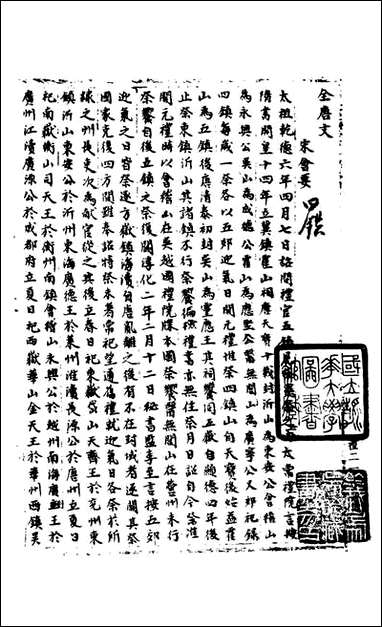 全唐文
宋會要
四鎮
太祖乾德六年四月七日詔問禮官五鎮 太常禮院言按
隋書開皇十四年立冀鎮霍山祠唐天寶十載封沂山為東安公會稽山
為永興公吳山為成德公霍山為應聖公醫無閭山為廣寧公又郊祀錄
四鎮每歲一祭各以五郊迎氣日開元禮惟祭四鎮山自天寶後始益霍
山為五鎮後唐清泰初封吳山為靈應王其祠饗同五嶽自顯德四年後
止祭東鎮沂山其諸鎮不行祭饗 禮書亦無住祭月日詔自今祭准
開元禮時以會稽山在吳越國禮院牒本國祭饗醫無閭山在營州未行
祭饗自後五鎮之祭復闕淳化二年二月十二日秘書監李至言按五郊
迎氣之日皆祭逐方嶽鎮海瀆自唐亂離之後有不在封域者遂闕其祭
國家克復四方間雖奉詔特祭未著常祀望遵舊禮就迎氣日各祭於所
隸之州長吏以次為獻官從之其後立春日祀東嶽岱山天齊王於兗州東
鎮沂山東安公於沂州東海廣德王於萊州淮瀆長源公於唐州立夏日
祀南嶽衡山司天王於衡州南鎮會稽山永興公於越州南海廣利王於
廣州江瀆廣源公於成都府立夏日祀西嶽華山金天王於華州西鎮吳